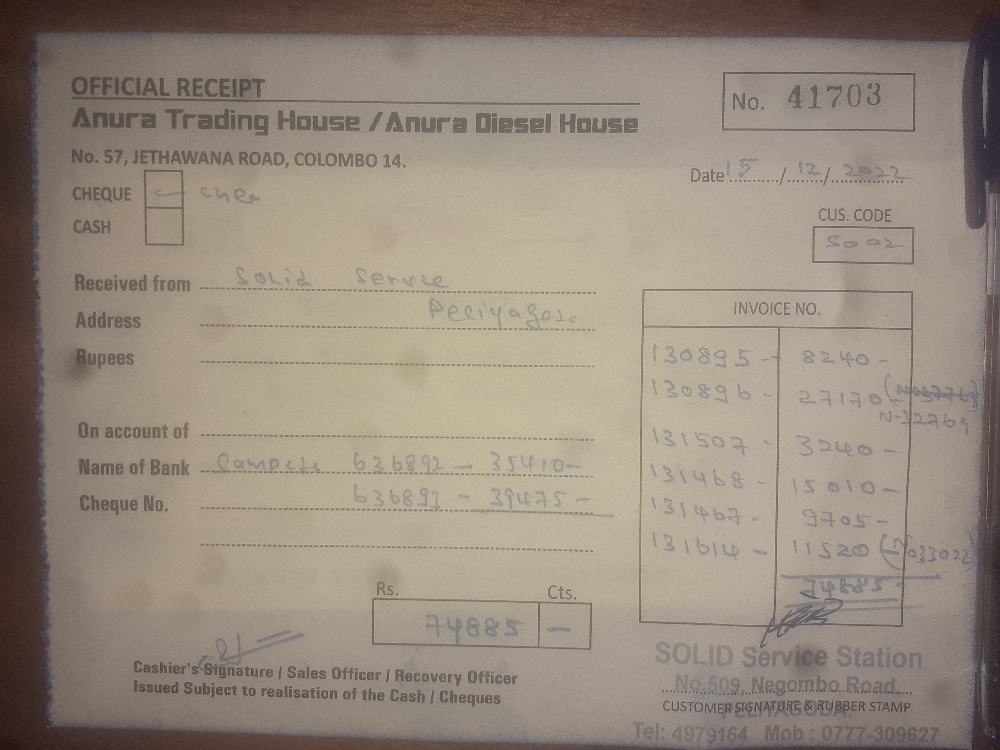 OFFICIAL RECEIPT
No. 41703
Anura Trading House / Anura Diesel House
No. 57, JETHAWANA ROAD, COLOMBO 14.
Date 15/12/2022
CHEQUE
CASH
CUS. CODE
5002
Received from Solid Service
Address
Rupees
On account of
Name of Bank 636892 - 35410-
Cheque No. 636893 - 39475-
INVOICE NO.
130895 - 8240-
130896 - 27170-
N-32769
131507 - 3240-
131468 - 15010-
131467 - 9705-
131614 - 11520 (N033022)
74885-
Rs. Cts.
74885 -
Cashier's Signature / Sales Officer / Recovery Officer
Issued Subject to realisation of the Cash / Cheques
SOLID Service Station
No.509, Negombo Road,
PELIYAGODA.
CUSTOMER SIGNATURE & RUBBER STAMP
Tel: 4979164 Mob : 0777-309627